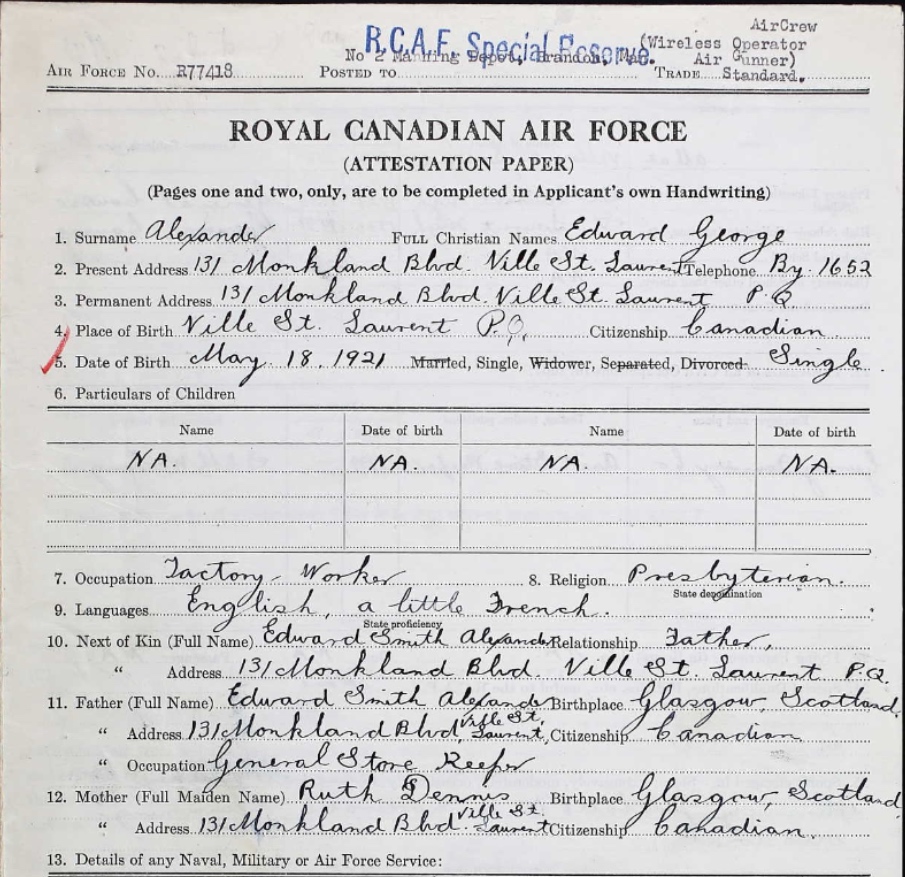 R.C.A.F. Special Reserve
AirCrew
No 2 Manning Depot, Brandon, Man.
(Wireless Operator
Air Gunner)
AIR FORCE No. R77418 POSTED TO TRADE Standard.
ROYAL CANADIAN AIR FORCE
(ATTESTATION PAPER)
(Pages one and two, only, are to be completed in Applicant's own Handwriting)
1. Surname Alexander FULL Christian Names Edward George
2. Present Address 131 Monkland Blvd. Ville St. Laurent Telephone By. 1652
3. Permanent Address 131 Monkland Blvd. Ville St. Laurent P.Q
4. Place of Birth Ville St. Laurent P.Q. Citizenship Canadian
5. Date of Birth May 18, 1921 Married, Single, Widower, Separated, Divorced Single
6. Particulars of Children
Name Date of birth Name Date of birth
NA. NA. NA. NA.
7. Occupation Factory - Worker 8. Religion Presbyterian.
State denomination
9. Languages English, a little French.
State proficiency
10. Next of Kin (Full Name) Edward Smith Alexander Relationship Father,
" Address 131 Monkland Blvd. Ville St. Laurent P.Q.
11. Father (Full Name) Edward Smith Alexander Birthplace Glasgow, Scotland.
" Address 131 Monkland Blvd, Ville St. Laurent, Citizenship Canadian
" Occupation General Store Keeper
12. Mother (Full Maiden Name) Ruth Dennis Birthplace Glasgow, Scotland
" Address 131 Monkland Blvd. Ville St. Laurent Citizenship Canadian.
13. Details of any Naval, Military or Air Force Service: